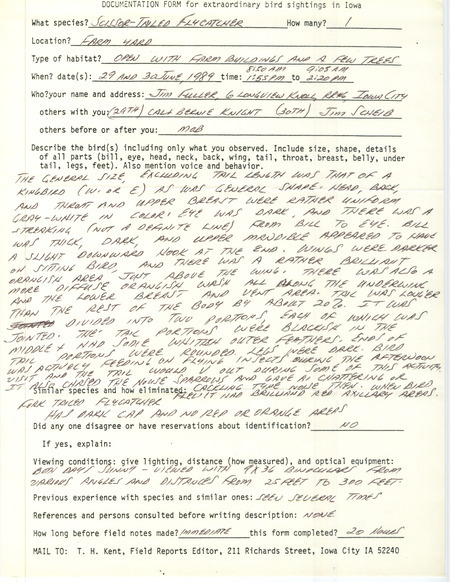 DOCUMENTATION FORM for extraordinary bird sightings in Iowa
What species? SCISSOR-TAILED FLYCATCHER How many? 1
Location? FARM YARD
Type of habitat? OPEN WITH FARM BUILDINGS AND A FEW TREES
8:50 AM 9:05 AM
When? date(s): 29 AND 30 JUNE 1989 time: 1:55 PM to 2:20 PM
Who? your name and address: JIM FULLER, 6 LONGVIEW KNOLL, RR6, IOWA CITY
others with you: (29TH) CAL & BERNIE KNIGHT (30TH) JIM SCHEIB
others before or after you: MOB
Describe the bird(s) including only what you observed. Include size, shape, details
of all parts (bill, eye, head, neck, back, wing, tail, throat, breast, belly, under
tail, legs, feet). Also mention voice and behavior.
THE GENERAL SIZE, EXCLUDING TAIL LENGTH WAS THAT OF A
KINGBIRD (W. OR E) AS WAS GENERAL SHAPE. HEAD, BACK,
AND THROAT AND UPPER BREAST WERE RATHER UNIFORM
GRAY-WHITE IN COLOR. EYE WAS DARK, AND THERE WAS A
STREAKING (NOT A DEFINITE LINE) FROM BILL TO EYE. BILL
WAS THICK, DARK, AND UPPER MANDIBLE APPEARED TO HAVE
A SLIGHT DOWNWARD HOOK AT THE END. WINGS WERE DARKER
ON SITTING BIRD AND THERE WAS A RATHER BRILLIANT
ORANGISH AREA JUST ABOVE THE WING. THERE WAS ALSO A
MORE DIFFUSE ORANGISH WASH ALL ALONG THE UNDERWING
AND THE LOWER BREAST AND VENT AREA. TAIL WAS LONGER
THAN THE REST OF THE BODY BY ABOUT 20%. IT WAS
DIVIDED INTO TWO PORTIONS, EACH OF WHICH WAS
JOINTED. THE TAIL PORTIONS WERE BLACKISH IN THE
MIDDLE & HAD SOME WHITISH OUTER FEATHERS. ENDS OF
TAIL PORTIONS WERE ROUNDED. LEGS WERE DARK. BIRD
WAS ACTIVELY FEEDING ON FLYING INSECTS DURING THE AFTERNOON
VISIT AND THE TAIL WOULD V OUT DURING SOME OF THIS ACTIVITY
IT ALSO CHASED THE HOUSE SPARROWS AND GAVE A CHATTERING OR
CACKLING TYPE NOISE THEN. WHEN BIRD
Similar species and how eliminated: FLEW IT HAD BRILLIANT RED AXILLARY AREAS.
FORK TAILED FLYCATCHER
HAS DARK CAP AND NO RED OR ORANGE AREAS
Did any one disagree or have reservations about identification? NO
If yes, explain:
Viewing conditions: give lighting, distance (how measured), and optical equipment:
BOTH DAYS SUNNY - VIEWED WITH 9X36 BINOCULARS FROM
VARIOUS ANGLES AND DISTANCES FROM 25 FEET TO 300 FEET.
Previous experience with species and similar ones: SEEN SEVERAL TIMES
References and persons consulted before writing description: NONE
How long before field notes made? IMMEDIATE this form completed? 20 HOURS
MAIL TO: T. H. Kent, Field Reports Editor, 211 Richards Street, Iowa City IA 52240